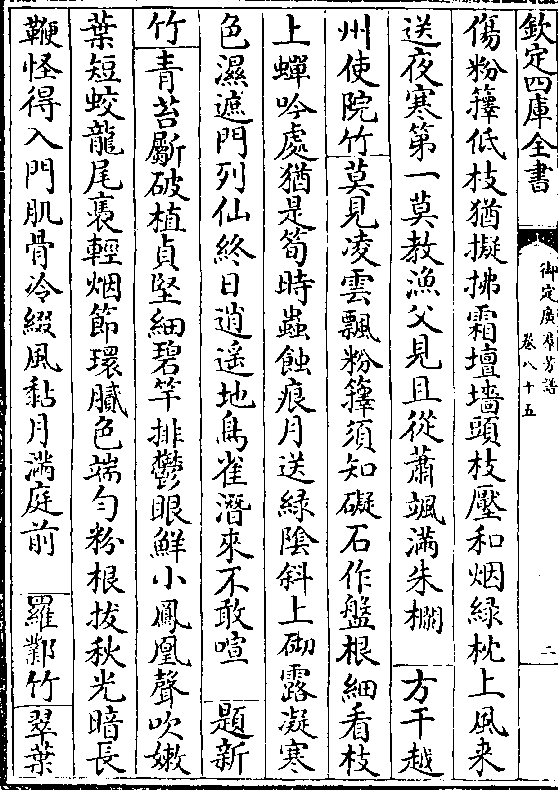 欽定四庫全書
御定廣羣芳譜
卷八十五
二
傷粉籜低枝猶擬拂霜壇墻頭枝壓和烟緑枕上風来
送夜寒第一莫教漁父見且從蕭颯滿朱欄 方干越
州使院竹莫見凌雲飄粉籜須知礙石作盤根細看枝
上蟬吟處猶是筍時蟲蝕痕月送緑陰斜上砌露凝寒
色濕遮門列仙終日逍遥地鳥雀潛來不敢喧 題新
竹青苔斸破植貞堅細碧竿排鬱眼鮮小鳳凰聲吹嫩
葉短蛟龍尾褭輕烟節環膩色端勻粉根拔秋光暗長
鞭怪得入門肌骨冷綴風黏月滿庭前 羅鄴竹翠葉